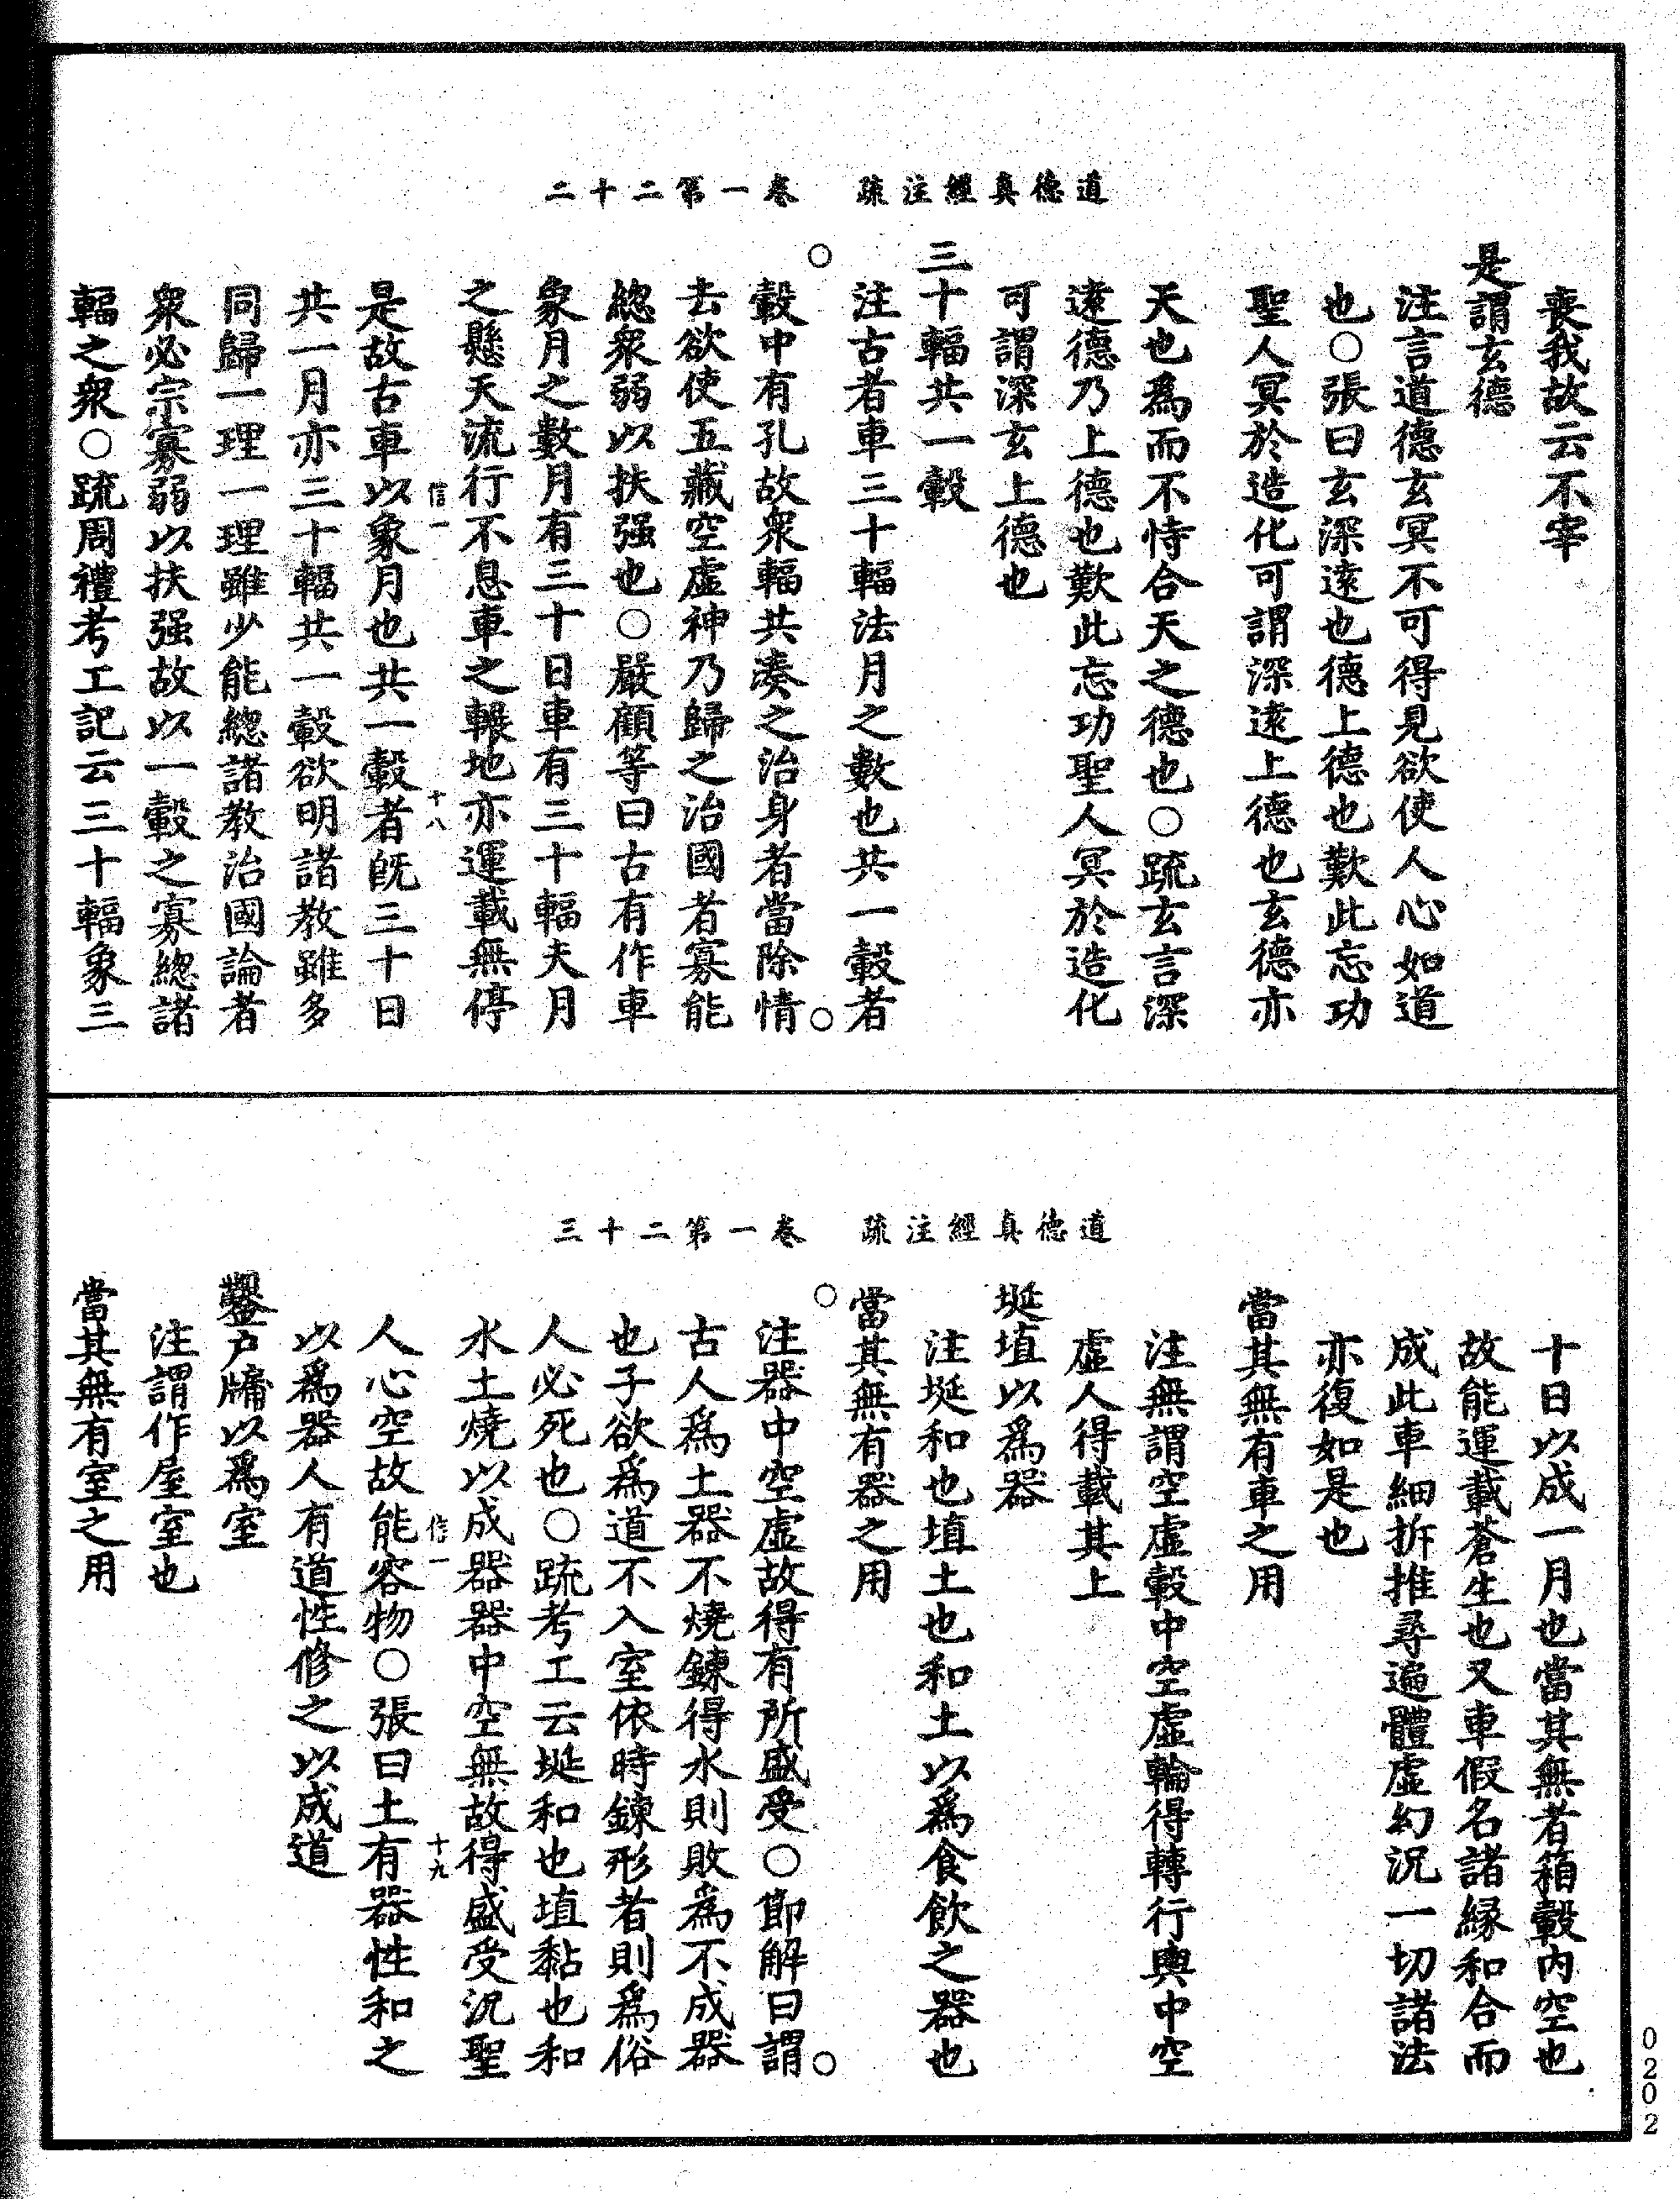 道德真經注疏　卷一第二十二
喪我故云不宰
是謂玄德
注言道德玄冥不可得見欲使人心如道
也○張曰玄深遠也德上德也歎此忘功
聖人冥於造化可謂深遠上德也玄德亦
天也為而不恃合天之德也○疏玄言深
遠德乃上德也歎此忘功聖人冥於造化
可謂深玄上德也
三十輻共一轂
注古者車三十輻法月之數也共一轂者
轂中有孔故衆輻共湊之治身者當除情
去欲使五藏空虛神乃歸之治國者寡能
總衆弱以扶强也○嚴顧等曰古有作車
象月之數月有三十日車有三十輻夫月
之懸天流行不息車之輾地亦運載無停
信一　十八
是故古車以象月也共一轂者旣三十日
共一月亦三十輻共一轂欲明諸教雖多
同歸一理一理雖少能總諸教治國論者
衆必宗寡弱以扶强故以一轂之寡總諸
輻之衆○疏周禮考工記云三十輻象三
道德真經注疏　卷一第二十三
十日以成一月也當其無者箱轂內空也
故能運載蒼生也又車假名諸緣和合而
成此車細拆推尋遍體虛幻況一切諸法
亦復如是也
當其無有車之用
注無謂空虛轂中空虛輪得轉行輿中空
虛人得載其上
埏埴以爲器
注埏和也埴土也和土以爲食飲之器也
當其無有器之用
注器中空虛故得有所盛受○節解曰謂
古人爲土器不燒鍊得水則敗爲不成器
也子欲爲道不入室依時鍊形者則爲俗
人必死也○疏考工云埏和也埴黏也和
水土燒以成器器中空無故得盛受況聖
信一　十九
人心空故能容物○張曰土有器性和之
以爲器人有道性修之以成道
鑿戶牖以爲室
注謂作屋室也
當其無有室之用
0202